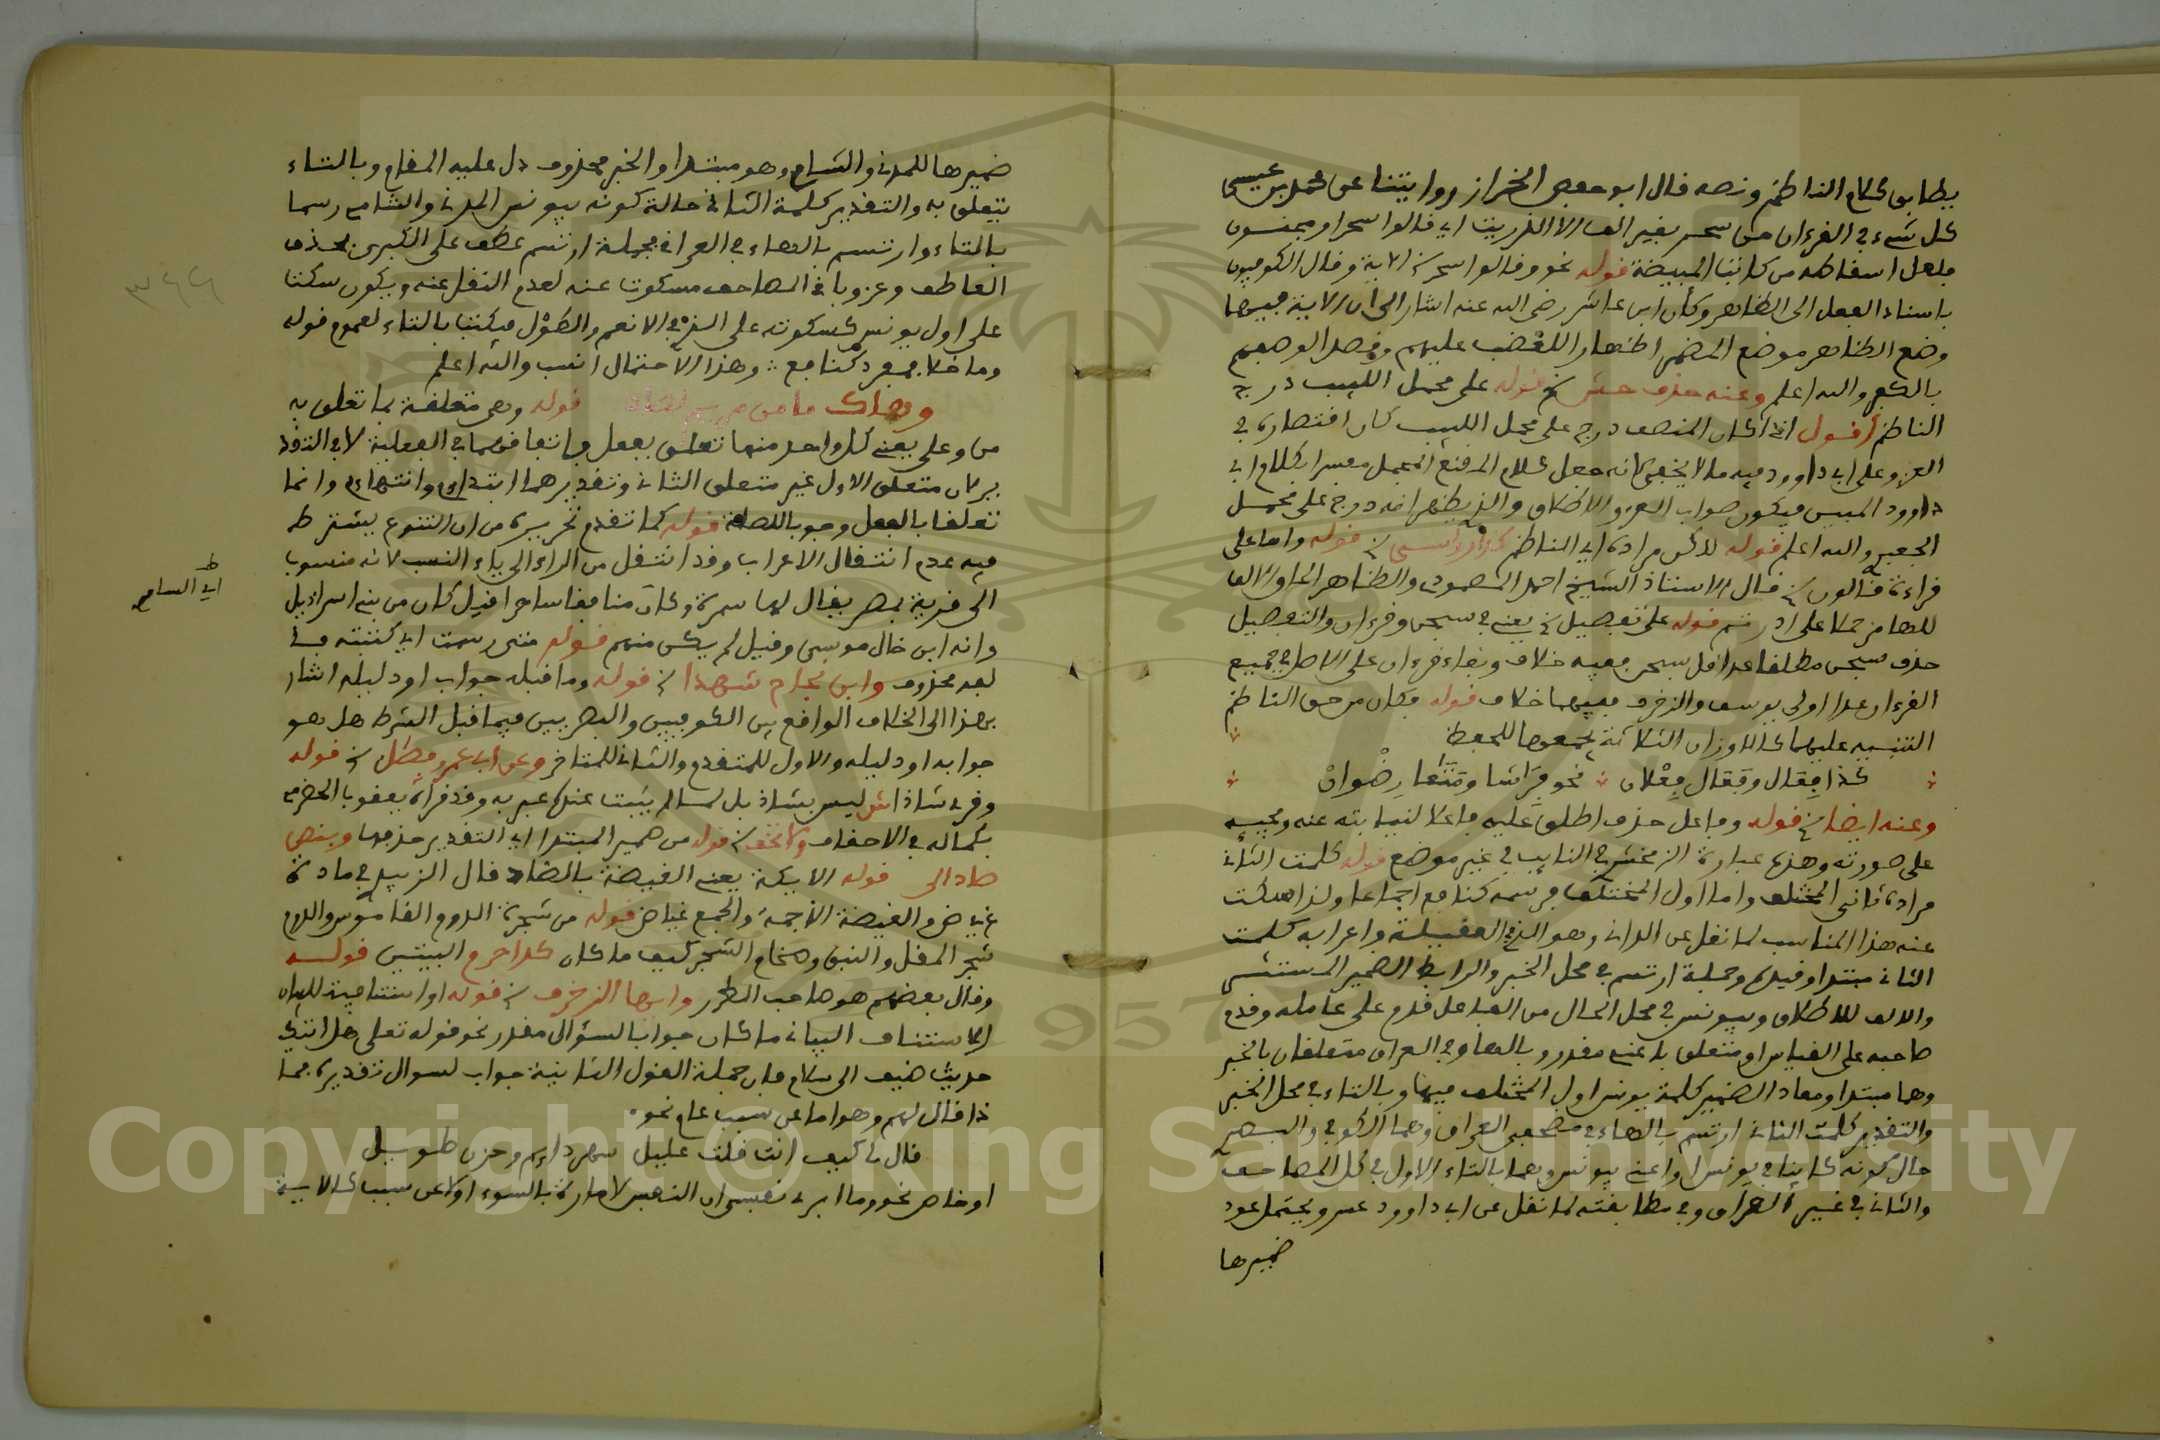 يطابق كلام الناظم ونصه قال ابو جعفر الخراز روايتنا عن محمد بن عيسى
كل شيء في القرءان من سحر بغير الف الا الذريت اي قالوا سحر او مجنون
فلعل اسقاطه من كاتبنا المبيضة قوله نحو وقالوا سحر الاية وقال الكوفيون
باسناد الفعل الى الظاهر وكان ابن عاشر رضي الله عنه اشار الى ان الاية فيها
وضع الظاهر موضع المضمر اظهار اللغضب عليهم وقصد الوصفهم
بالكفر والله اعلم وعنه حذف قوله على محمل اللبيب درج
الناظم اقول اذا كان المنصف درج على محمل اللبيب كان اقتصاره في
العزو على ابي داوود فيه ما لا يخفى كانه جعل كلام المقنع المجمل مفسرا بكلام ابي
داوود المبين فيكون صواب العزو الاطلاق والذي يظهر انه درج على محمل
الجعبري والله اعلم قوله لاكن مراده اي الناظم قوله واما على
قراءة قالون قال الاستاذ الشيخ احمد والظاهر الحاق الالف
للهامز حملا على ارتسم قوله على تفصيل يعني في سبحن وقرءان والتفصيل
حذف سبحن مطلقا عدا قل سبحن ففيه خلاف وبقاء قرءان على الاصل في جميع
القرءان عدا اولى يوسف والزخرف ففيهما خلاف قوله فكان من حق الناظم
التنبيه عليهما كالاوزان الثلاثة بجمعها للحفظ
كذا فعال وفعال فعلان نحو فراشا ومتاعا رضوان
وعنه ايضا قوله وفاعل حذف اطلق عليه فاعلا لنيابته عنه ومجيئه
على صورته وهذه عبارة الزمخشري في النايب في غير موضع قوله كلمت الثاني
مراده ثاني المختلف واما اول المختلف فرسمه كنافع اجماعا ولذا سكت
عنه هذا المناسب لما نقل عن الداني وهو الذي في العقيلة واعرابه كلمت
الثاني مبتدا وقيده وجملة ارتسم في محل الخبر والرابط الضمير المستتر
والالف للاطلاق وبيونس في محل الحال من الفاعل قدم على عامله وقدم
صاحبه على القياس او متعلق باعني مقدر وبالهاء وفي العراق متعلقان بالخبر
وهما مبتدا ومعاد الضمير كلمة يونس اول المختلف فيها وبالتاء في محل الخبر
والتقدير كلمت الثاني ارتسم بالهاء في مصحفي العراق وهما الكوفي والبصري
حال كونه كاينا في يونس او اعني بيونس وهما بالتاء الاول في كل المصاحف
والثاني في غير العراق وفي مطابقته لما نقل عن ابي داوود عسر ويحتمل عود
ضميرها
ضميرها للمدني والشام وهو مبتدا والخبر محذوف دل عليه المقام وبالتاء
يتعلق به والتقدير كلمة الثاني حالة كونه بيونس المدني والشامي رسما
بالتاء وارتسم بالهاء في العراق فجملة ارتسم عطف على الكبرى بحذف
العاطف وعزوبا في المصاحف مسكوتا عنه لعدم النقل عنه ويكون سكتا
على اول يونس كسكوته على الذي في الانعم والطول فيكتبا بالتاء لعموم قوله
وما خلا فمفرد كنافع وهذا الاحتمال انسب والله اعلم
وهاك ما من قوله وهي متعلقة بما تعلق به
من وعلى يعني كل واحد منهما تعلق بفعل واتفاقهما في الفعلية لا في التقدير
بركان متعلق الاول غير متعلق الثاني وتقديرهما ابتداء وانتهاء وانما
تعلقا بالفعل وجوبا للصلة قوله كما تقدم تحريره من ان التنوع يشترط
فيه عدم انتقال الاعراب وقد انتقل من الراء الى ياء النسب لانه منسوب
ابي السامري
الى قرية بمصر يقال لها سمرة وكان منافقا ساحرا قيل كان من بني اسراءيل
وانه ابن خال موسى وقيل لم يكن منهم قوله متى رسمت اي كتبته
لعد محذوف وابن نجاح شهدا قوله وما قبله جواب او دليله اشار
بهذا الى الخلاف الواقع بين الكوفيين والبصريين فيما قبل الشرط هل هو
جوابه او دليله والاول للمتقدم والثاني للمتاخر وعن ابي عمرو قوله
وقرء شاذا ليس بشاذ بل لما لم يثبت عنده عبر به وقد قراه يعقوب الحضرمي
بكماله في الاحقاف قوله من ضمير المبتدا اي التقدير حذفها وبنص
صاد الى قوله الايكة يعني الغيضة بالضاد قال الزبيدي في مادة
غيض والغيضة الاجمة والجمع غياض قوله من شجرة الدوم القاموس والدوم
شجر المقل والنبق وضخام الشجر كيف ما كان كذا حرم البيتين قوله
وقال بعضهم هو صاحب الطرر وايها الزخرف قوله او استئنافية للبيان
الاستئناف البياني ما كان جوابا لسؤال مقدر نحو قوله تعلى هل اتيك
حديث ضيف الى سلام فان جملة القول الثانية جواب لسوال تقديره فما
ذا قال لهم وهو اما عن سبب عام نحو
قال لي كيف انت قلت عليل سهر دايم وحزن طويل
او خاص نحو وما ابرء نفسي ان النفس لامارة بالسوء او لا عن سبب كالاية
Copyright © King Saud University
1957